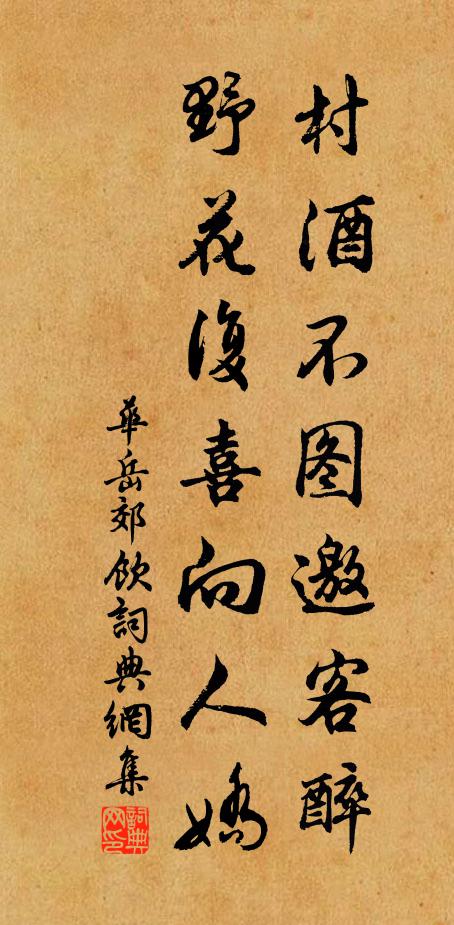 村酒不图邀客醉
野花復喜向人嬌
華岳郊飲詞典網集
詞典网印